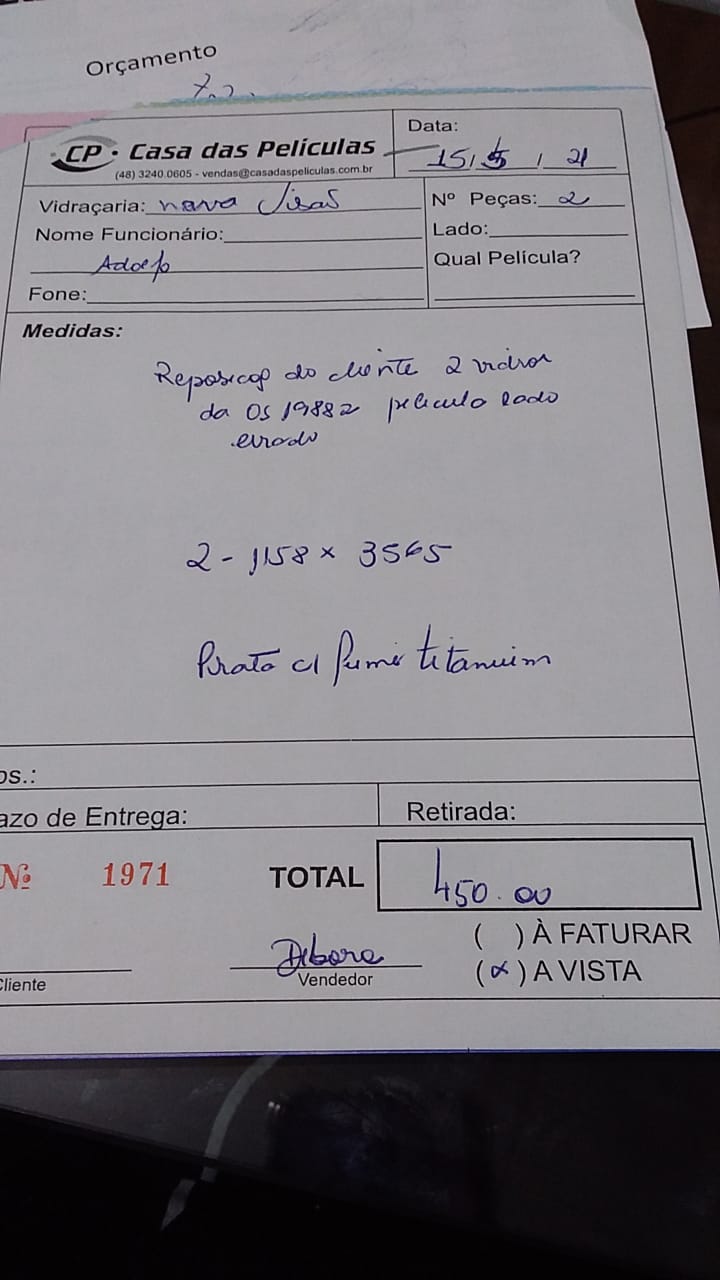 Orçamento
CP • Casa das Películas
(48) 3240.0605 - vendas@casadaspeliculas.com.br
Data:
15/5/21
Vidraçaria: nova Visão
Nº Peças: 2
Nome Funcionário:
Adolfo
Lado:
Qual Película?
Fone:
Medidas:
Reposição do cliente 2 vidros
da OS 19882 película lado
errado
2 - 1158 x 3565
Prata c/ fumê titanium
os.:
azo de Entrega:
Retirada:
Nº 1971
TOTAL
450.00
( ) À FATURAR
(x) A VISTA
Debora
Vendedor
Cliente